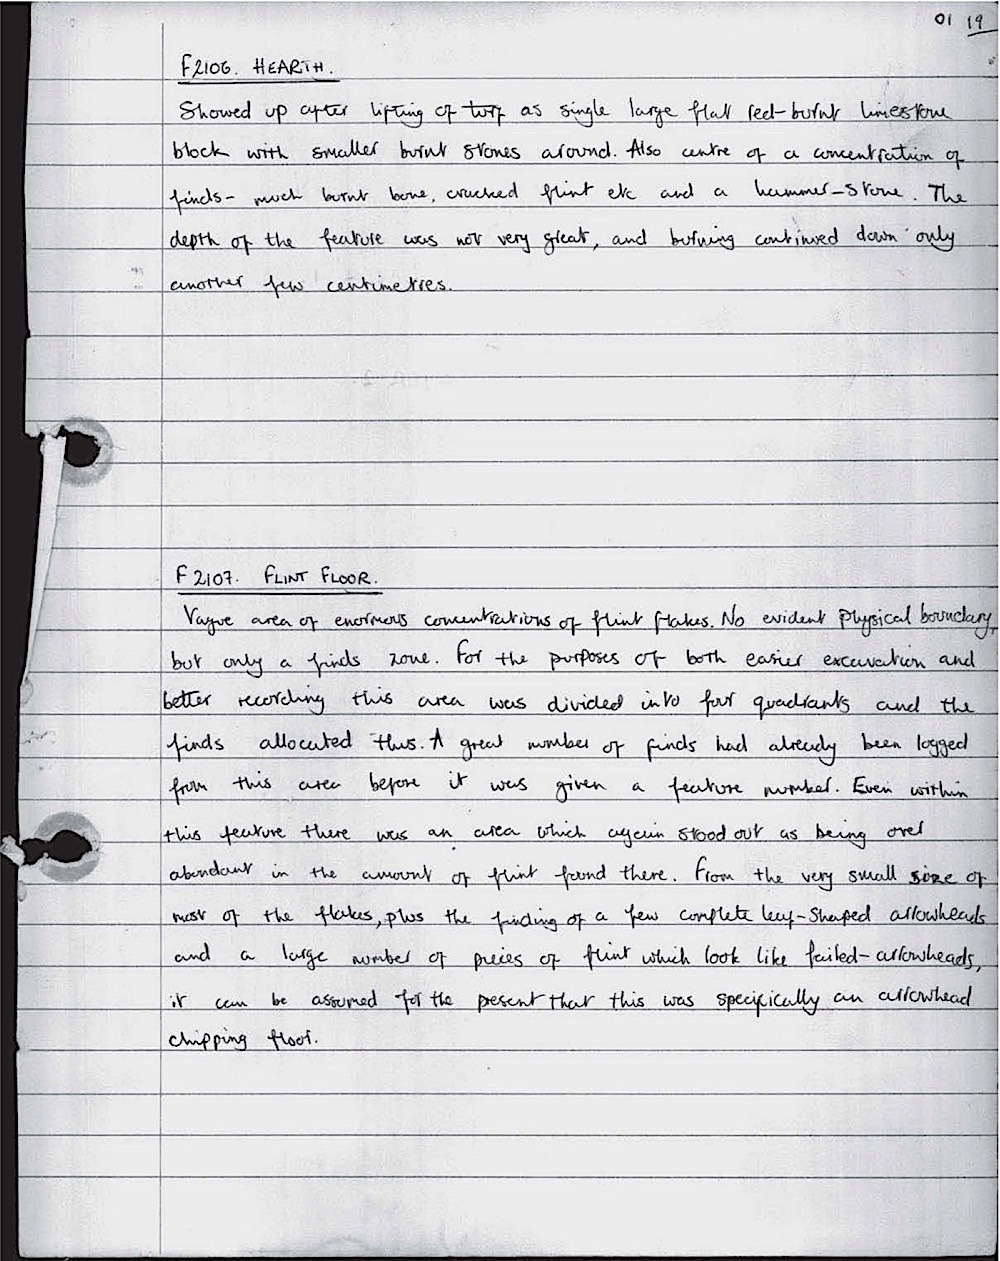 01 19
F2106. HEARTH.
Showed up after lifting of turf as single large flat red-burnt limestone
block with smaller burnt stones around. Also centre of a concentration of
finds- much burnt bone, cracked flint etc and a hammer-stone. The
depth of the feature was not very great, and burning continued down only
another few centimetres.
F2107. FLINT FLOOR.
Vague area of enormous concentrations of flint flakes. No evident physical boundary,
but only a finds zone. For the purposes of both easier excavation and
better recording this area was divided into four quadrants and the
finds allocated thus. A great number of finds had already been logged
from this area before it was given a feature number. Even within
this feature there was an area which again stood out as being over
abundant in the amount of flint found there. From the very small size of
most of the flakes, plus the finding of a few complete leaf-shaped arrowheads
and a large number of pieces of flint which look like failed-arrowheads,
it can be assumed for the present that this was specifically an arrowhead
chipping floor.